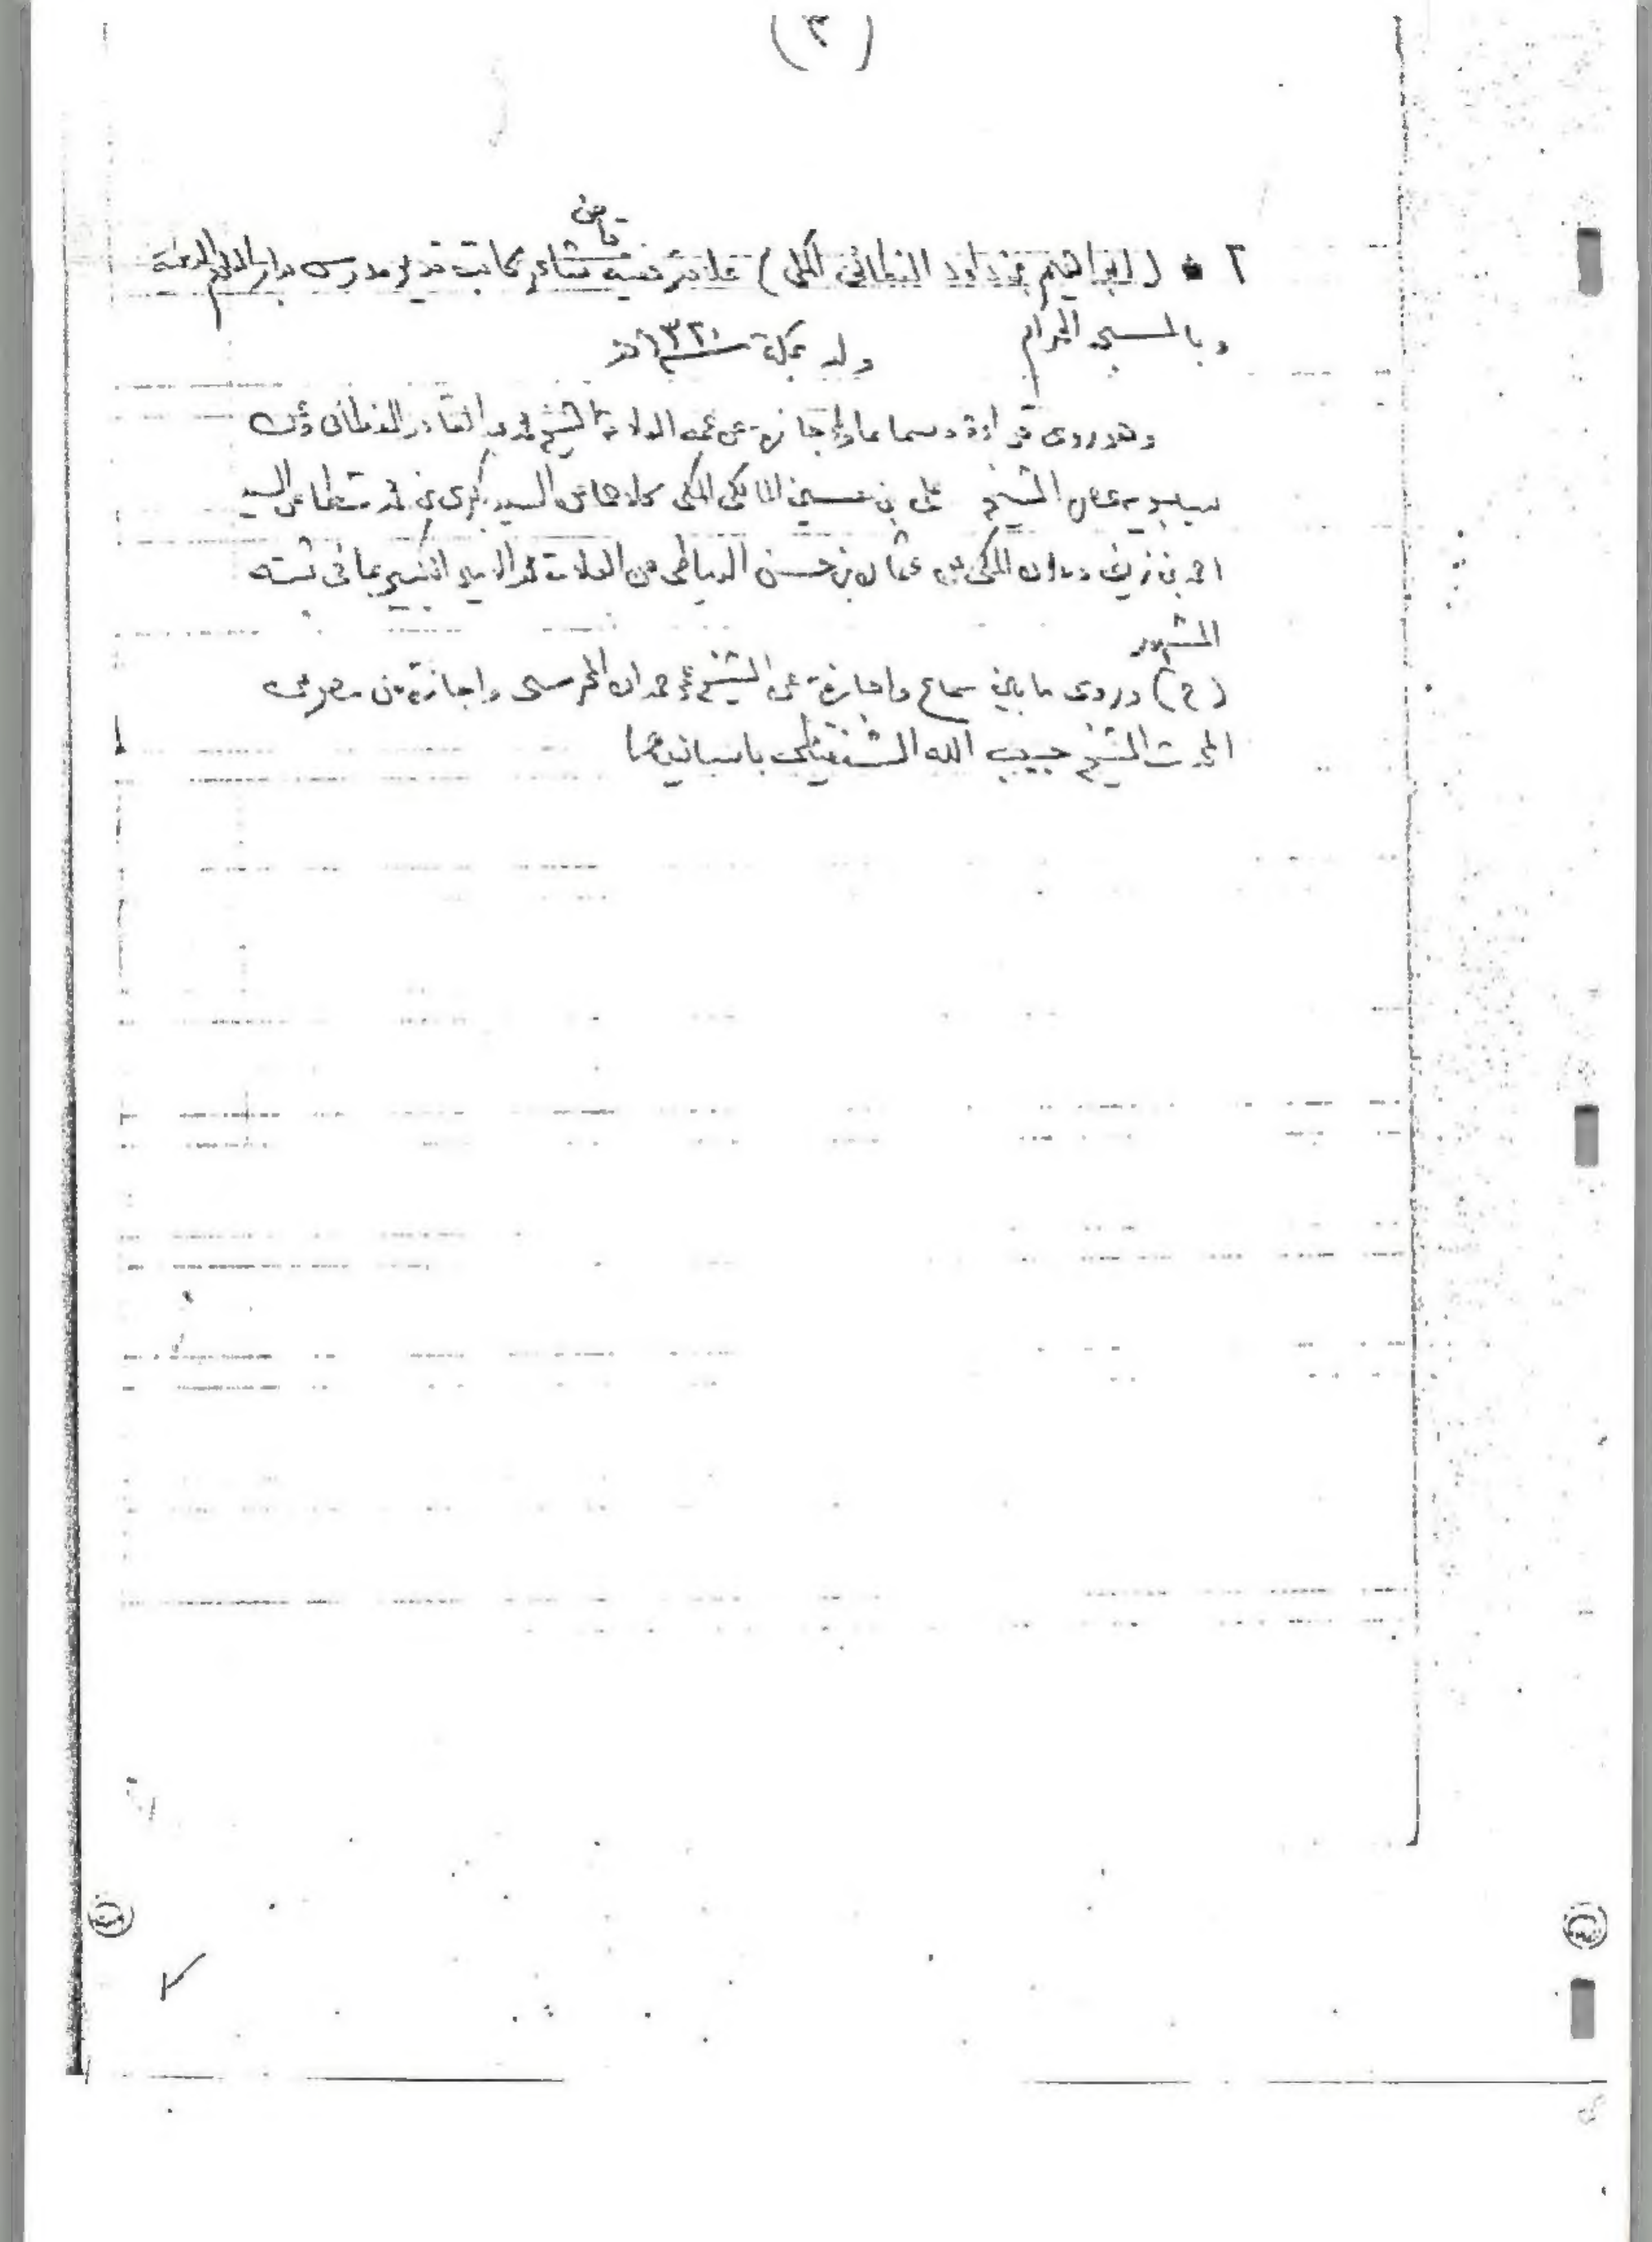 (٣)
٢ • (ابراهيم بن داود الفطاني المكي) علامة فقيه شاعر كاتب قدير مدرس بدار العلوم الدينية
قاض
وبالمسجد الحرام ولد بمكة ١٣٢٠هـ
وهو روى قراءة وسماعا واجازة عن عمه العلامة الشيخ محمد عبد القادر الفطاني وعن
سيبويه عصره الشيخ علي بن حسين المالكي المكي كلاهما عن السيد بكري بن محمد شطا عن السيد
احمد بن زيني دحلان المكي عن عثمان بن حسن الدمياطي عن العلامة محمد الامير الكبير بما في ثبته
المشهور
(ح) وروى ما بين سماع واجازة عن الشيخ عمر حمدان المحرسي واجازة من مصر عن
المحدث الشيخ حبيب الله الشنقيطي باسانيدهما